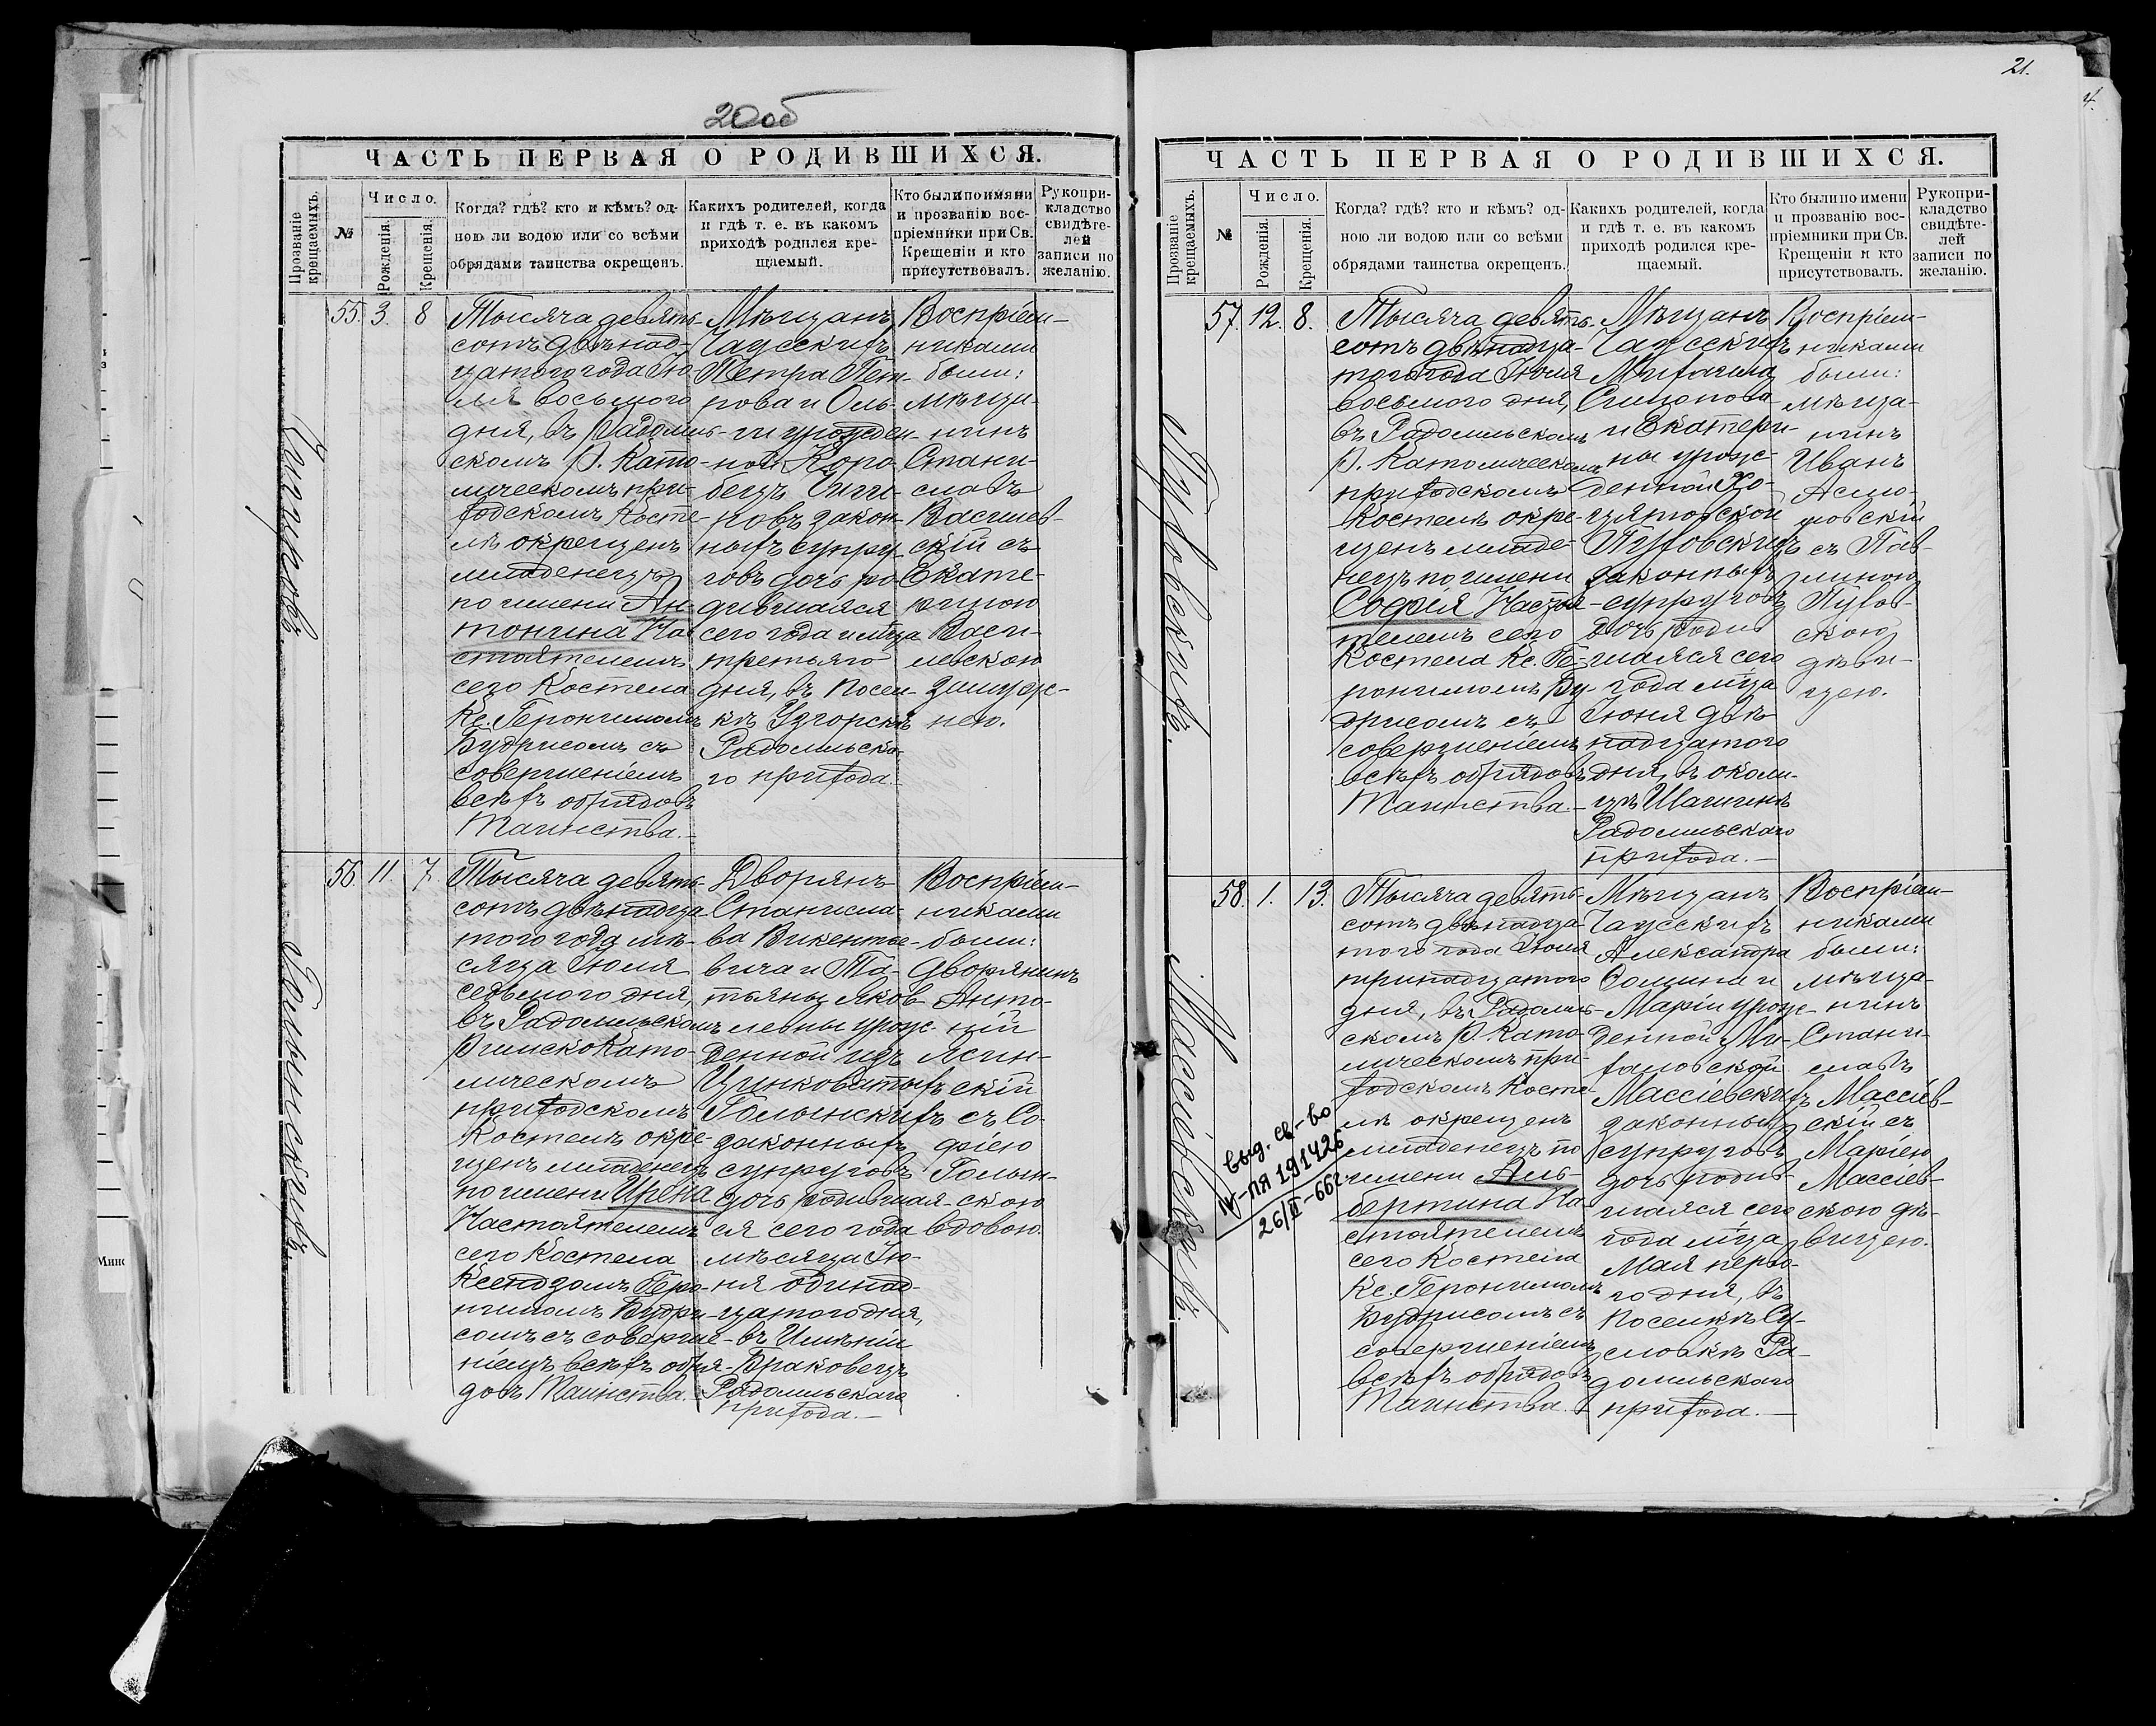 20об
ЧАСТЬ ПЕРВАЯ О РОДИВШИХСЯ.
Прозваніе крещаемыхъ.
№
Число.
Рожденія.
Крещенія.
Когда? гдѣ? кто и кѣмъ? од-
ною ли водою или со всѣми
обрядами таинства окрещенъ.
Какихъ родителей, когда
и гдѣ т. е. въ какомъ
приходѣ родился кре-
щаемый.
Кто были по имяни
и прозванію вос-
пріемники при Св.
Крещеніи и кто
присутствовалъ.
Рукопри-
кладство
свидѣте-
лей
записи по
желанію.
55. 3. 8
Тысяча девять-
сотъ двѣнад-
цатого года Ію
ля восьмого
дня, въ Радомль-
скомъ Р. Като-
лическомъ при-
ходскомъ Косте-
лѣ окрещенъ
младенецъ
по имени Ан-
тонина На-
стоятелемъ
сего Костела
Кс. Геронимомъ
Будрисомъ съ
совершеніемъ
всѣхъ обрядовъ
Таинства.-
Мѣщанъ
Чаусскихъ
Петра Пет-
рова и Оль-
ги урожден-
ной Коро-
бецъ
новъ закон-
ныхъ супру-
говъ дочь ро-
дившаяся
сего года и м-ца
третьяго
дня, въ посел-
кѣ Узгорскъ
Радомльска-
го прихода.-
Воспріем-
никами
были:
мѣща-
нинъ
Стани-
славъ
Василев-
скій съ
Екате-
риною
Васи-
левскою
замуж-
нею.
56. 11. 7.
Голынскихъ.
Тысяча девять-
сотъ двѣнадца
того года мѣ-
сяца Іюля
седьмого дня,
въ Радомльскомъ
Римско Като-
лическомъ
приходскомъ
Костелѣ окре-
щенъ младенецъ
по имени Ирена
Настоятелемъ
сего Костела
Ксендзомъ Геро-
нимомъ Будри-
сомъ съ соверше-
ніемъ всѣхъ обря-
довъ Таинства.
Дворянъ
Станисла-
ва Викентье-
вича и Та-
тьяны Яков-
левны урож-
денной изъ
Цунковатыхъ
Голынскихъ
законныхъ
супруговъ
дочь родившая-
ся сего года
мѣсяца Ію-
ня одинад-
цатого дня,
въ Имѣніи
Браковецъ
Радомльскаго
прихода.-
Воспріем-
никами
были:
дворянинъ
Анто-
ній
Ясин-
скій
съ Со-
фіею
Голын-
скою
вдовою.
21.
ЧАСТЬ ПЕРВАЯ О РОДИВШИХСЯ.
Прозваніе крещаемыхъ.
№
Число.
Рожденія.
Крещенія.
Когда? гдѣ? кто и кѣмъ? од-
ною ли водою или со всѣми
обрядами таинства окрещенъ.
Какихъ родителей, когда
и гдѣ т. е. въ какомъ
приходѣ родился кре-
щаемый.
Кто были по имени
и прозванію вос-
пріемники при Св.
Крещеніи и кто
присутствовалъ.
Рукопри-
кладство
свидѣте-
лей
записи по
желанію.
57. 12. 8.
Пуховскихъ.
Тысяча девять-
сотъ двѣнадца-
того года Іюля
восьмого дня,
въ Радомльскомъ
Р. Католическомъ
приходскомъ
Костелѣ окре-
щенъ младе-
нецъ по имени
Софія Настоя-
телемъ сего
Костела Кс. Ге-
ронимомъ Бу-
дрисомъ съ
совершеніемъ
всѣхъ обрядовъ
Таинства.-
Мѣщанъ
Чаусскихъ
Михаила
и Екатери-
ны урож-
денной
Пуховскихъ
законныхъ
супруговъ
дочь родив
шаяся сего
года м-ца
Іюня двѣ-
надцатого
дня, въ околи-
цѣ
Радомльскаго
прихода.-
Воспріем-
никами
были:
мѣща-
нинъ
Иванъ
съ Пав-
линою
Пухов-
скою
дѣви-
цею.
58. 1. 13.
Массіевскихъ.
Тысяча девять-
сотъ двѣнадца-
того года Іюля
тринадцатого
дня, въ Радомль-
скомъ Р. Като-
лическомъ при-
ходскомъ Косте-
лѣ окрещенъ
младенецъ по
имени Аль-
бертина На-
стоятелемъ
сего Костела
Кс. Геронимомъ
Будрисомъ съ
совершеніемъ
всѣхъ обрядовъ
Таинства.
Мѣщанъ
Чаусскихъ
Александра
Фомина и
Маріи урож-
денной Ми-
халовской
Массіевскихъ
законныхъ
супруговъ
дочь родив-
шаяся сего
года м-ца
Мая перво-
го дня, въ
поселкѣ Су-
словкѣ Ра-
домльскаго
прихода.-
Воспріем-
никами
были:
мѣща-
нинъ
Стани-
славъ
Массіев-
скій съ
Маріею
Массіев-
скою дѣ-
вицею.
выд. св-во
IV-ПЯ 191426
26/II-66г